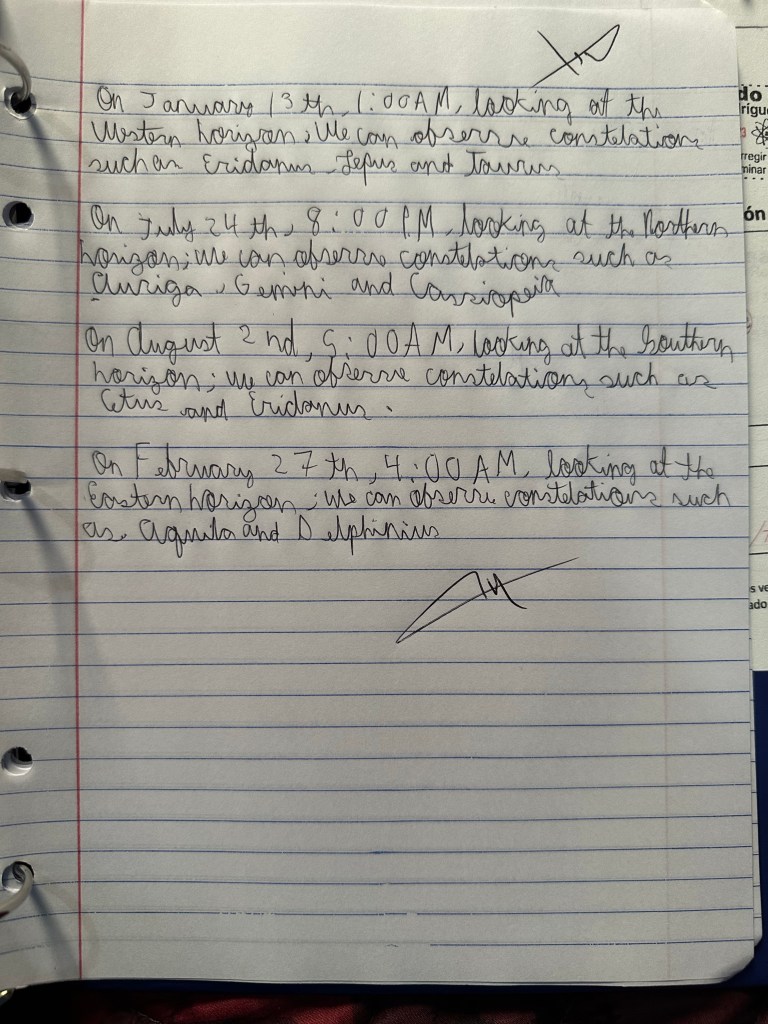 On January 13th, 1:00AM, looking at the
Western horizon; We can observe constelations
such as Eridanus, Lepus and Taurus
On July 24th, 8:00 PM, looking at the Northern
horizon; we can observe constelations such as
Auriga, Gemini and Cassiopeia
On August 2nd, 5:00AM, looking at the Southern
horizon; we can observe constelations such as
Cetus and Eridanus.
On February 27th, 4:00AM, looking at the
Eastern horizon; we can observe constelations such
as, Aquila and Delphinius
do
rigue
regir
minar
ón
s ve
ado